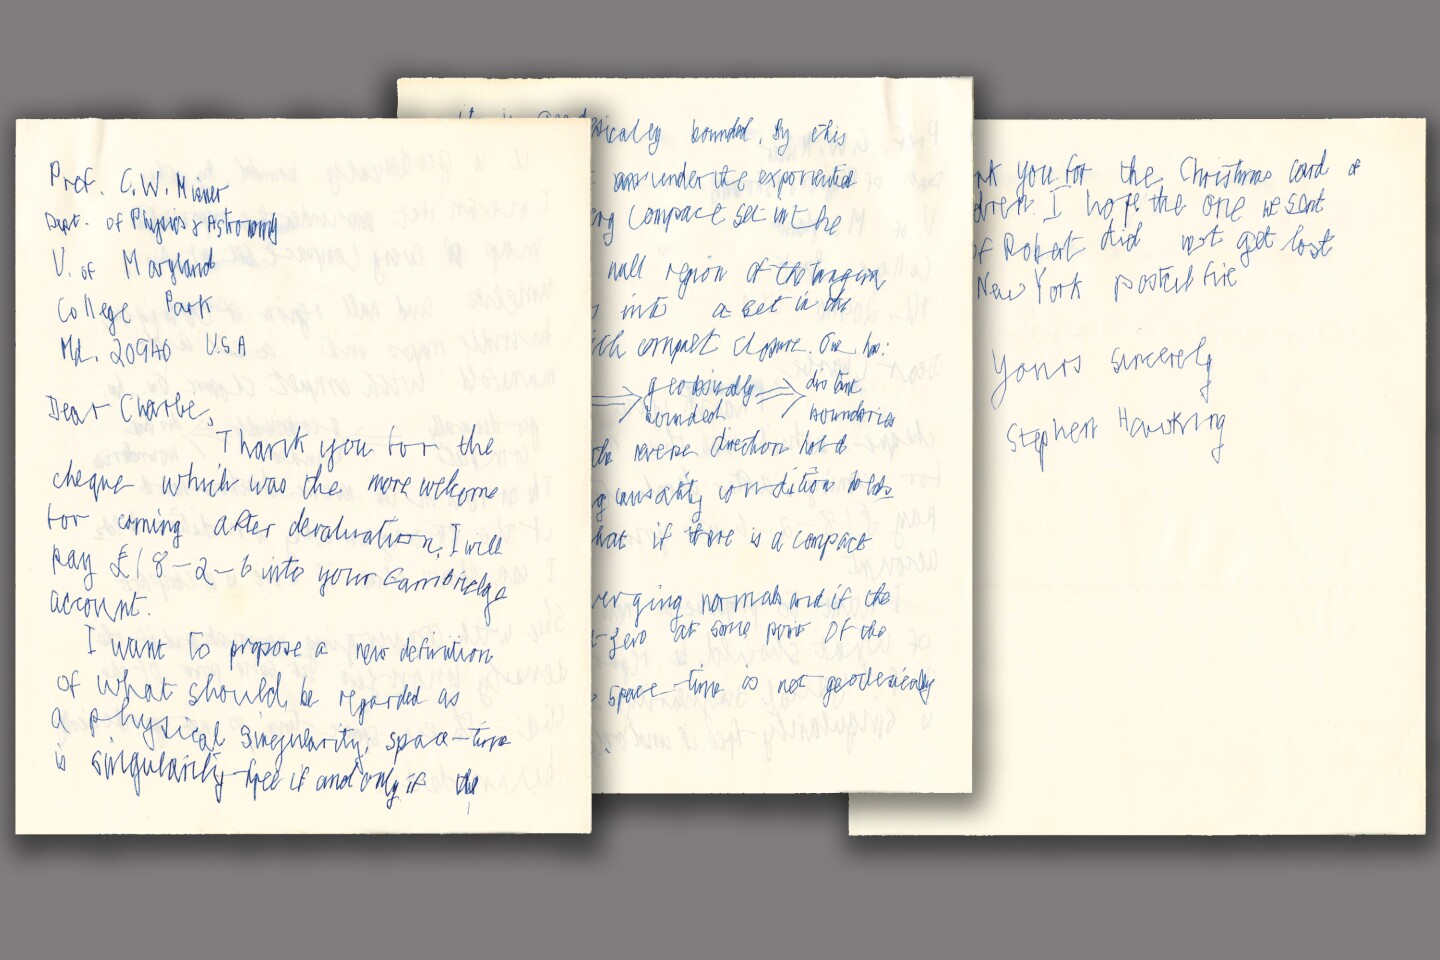 Prof. C. W. Misner
Dept. of Physics & Astronomy
U. of Maryland
College Park
Md. 20940 U.S.A
Dear Charlie,
Thank you for the
cheque which was the more welcome
for coming after devaluation. I will
pay £18-2-6 into your Cambridge
account.
I want to propose a new definition
of what should be regarded as
a physical singularity: space-time
is singularity-free if and only if the
it is geodesically bounded. By this
under the exponential
compact set in the
null region of the tangent
into a set in the
compact closure. One has:
⟹ geodesically ⟹ distant
bounded boundaries
the reverse direction hold
causality condition holds
that if there is a compact
erging normals and if the
zero at some point of the
space-time is not geodesically
nk you for the Christmas card of
dren. I hope the one we sent
of Robert did not get lost
New York postal fire
Yours sincerely
Stephen Hawking